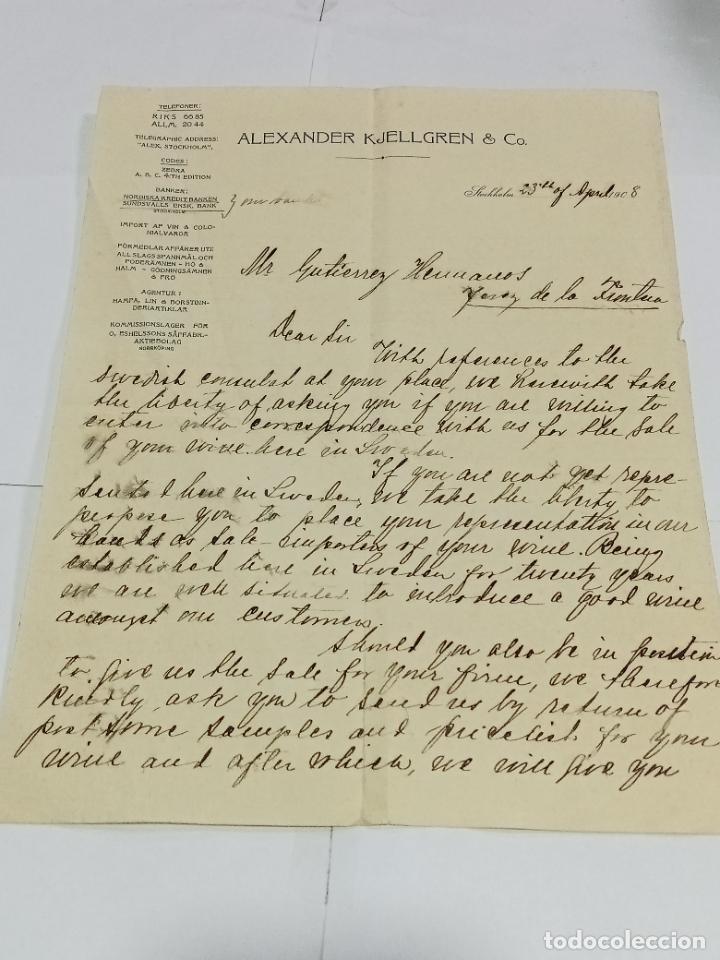 TELEFONER:
RIKS 66 85
ALLM. 20 44
TELEGRAPHIC ADDRESS:
"ALEX, STOCKHOLM".
CODES:
ZEBRA
A. B. C. 4/TH EDITION
BANKER:
NORDISKA KREDITBANKEN
SUNDSVALLS ENSK. BANK
STOCKHOLM
IMPORT AF VIN & COLO-
NIALVAROR
FÖRMEDLAR AFFÄRER UTI
ALL SLAGS SPANNMÅL OCH
FODERÄMNEN - HÖ &
HALM - GÖDNINGSÄMNEN
& FRÖ
AGENTUR I
HAMPA, LIN & BORSTBIN-
DERIARTIKLAR
KOMMISSIONSLAGER FÖR
O. ESHELSSONS SÅPFABR.-
AKTIEBOLAG
NORRKÖPING
ALEXANDER KJELLGREN & Co.
Stockholm 23th of April 1908
Mr Gutierrez Hermanos
Jerez de la Frontera
Dear Sir
With references to the
swedish consulat at your place, we herewith take
the liberty of asking you if you are willing to
enter into correspondence with us for the sale
of your wine here in Sweden.
If you are not yet repre-
sented here in Sweden, we take the liberty to
propose you to place your representation in our
hands as sale-importers of your wine. Being
established here in Sweden for twenty years
we are well situated to introduce a good wine
amongst our customers.
Should you also be in position
to give us the sale for your firm, we therefore
kindly ask you to send us by return of
post some samples and pricelist for your
wine and after which, we will give you
todocoleccion.net